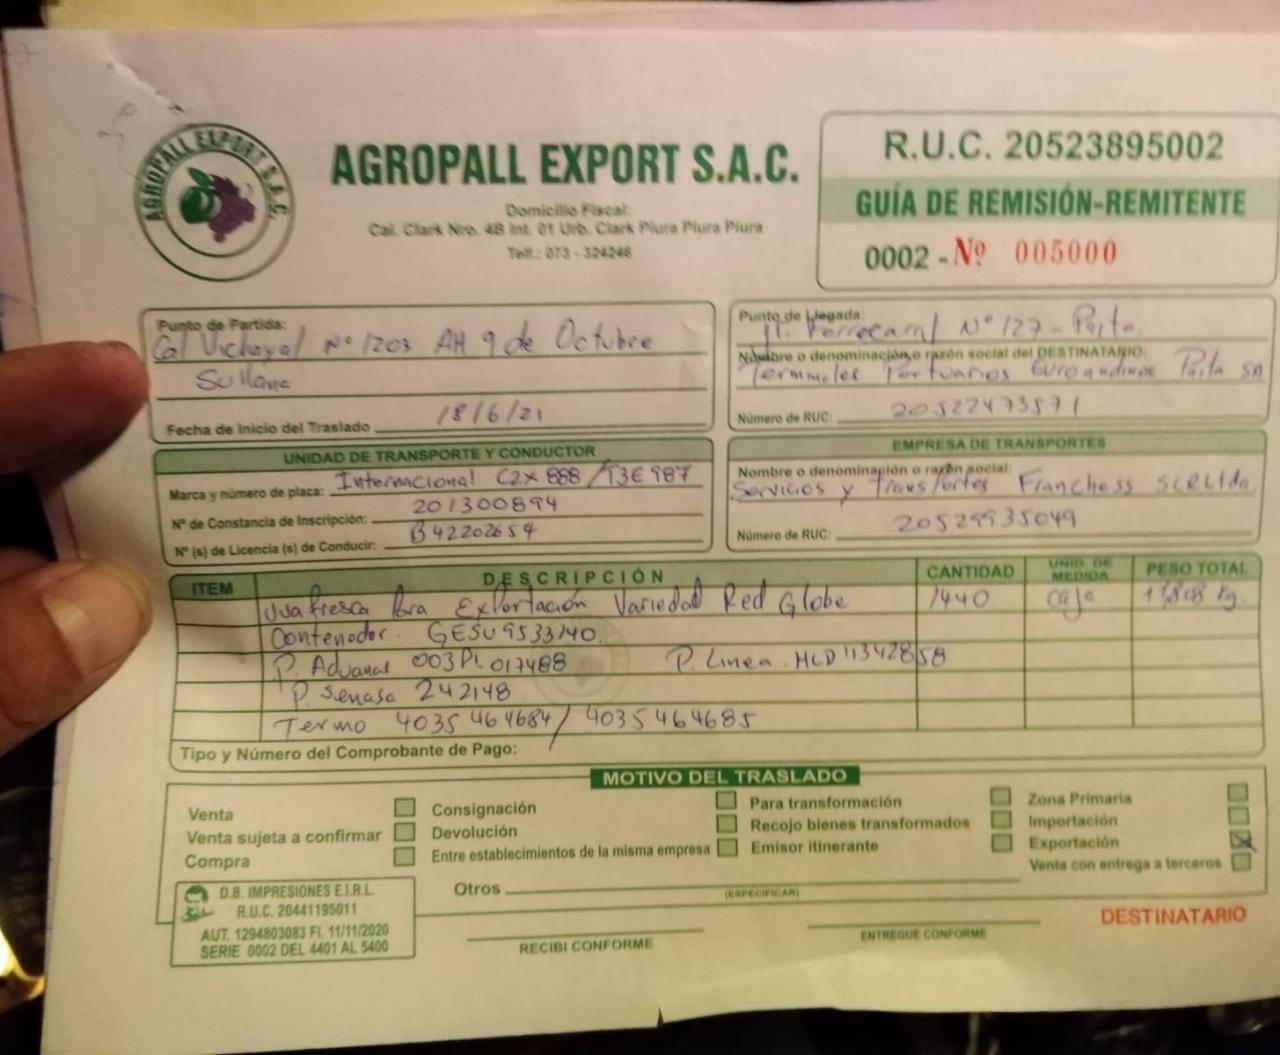 AGROPALL EXPORT S.A.C.
AGROPALL EXPORT S.A.C.
Domicilio Fiscal:
Cal. Clark Nro. 4B Int. 01 Urb. Clark Piura Piura Piura
Telf.: 073 - 324246
R.U.C. 20523895002
GUÍA DE REMISIÓN-REMITENTE
0002 - Nº 005000
Punto de Partida:
Cal Vichayal Nº 1203 AH 9 de Octubre
Sullana
Fecha de Inicio del Traslado 18/6/21
Punto de Llegada:
Jr. Ferrocarril Nº 127 - Paita
Nombre o denominación o razón social del DESTINATARIO:
Terminales Portuarios Euroandinos Paita SA
Número de RUC: 20522473571
UNIDAD DE TRANSPORTE Y CONDUCTOR
Marca y número de placa: Internacional C2X 888 / T3E 987
Nº de Constancia de Inscripción: 201300894
Nº (s) de Licencia (s) de Conducir: B42202654
EMPRESA DE TRANSPORTES
Nombre o denominación o razón social:
Servicios y Transportes Franchess SCRLtda
Número de RUC: 20529935049
ITEM DESCRIPCIÓN CANTIDAD UNID. DE MEDIDA PESO TOTAL
Uva fresca Para Exportación Variedad Red Globe 1440 Caja Kg.
Contenedor. GESU9533140.
P. Aduanas 003PL017488 P. Linea. HLD11342858
P. Senasa 242148
Termo 4035464684 / 4035464685
Tipo y Número del Comprobante de Pago:
MOTIVO DEL TRASLADO
Venta
Venta sujeta a confirmar
Compra
Consignación
Devolución
Entre establecimientos de la misma empresa
Para transformación
Recojo bienes transformados
Emisor itinerante
Zona Primaria
Importación
Exportación
Venta con entrega a terceros
Otros
(ESPECIFICAR)
D.B. IMPRESIONES E.I.R.L.
R.U.C. 20441195011
AUT. 1294803083 FI. 11/11/2020
SERIE 0002 DEL 4401 AL 5400
RECIBI CONFORME
ENTREGUE CONFORME
DESTINATARIO